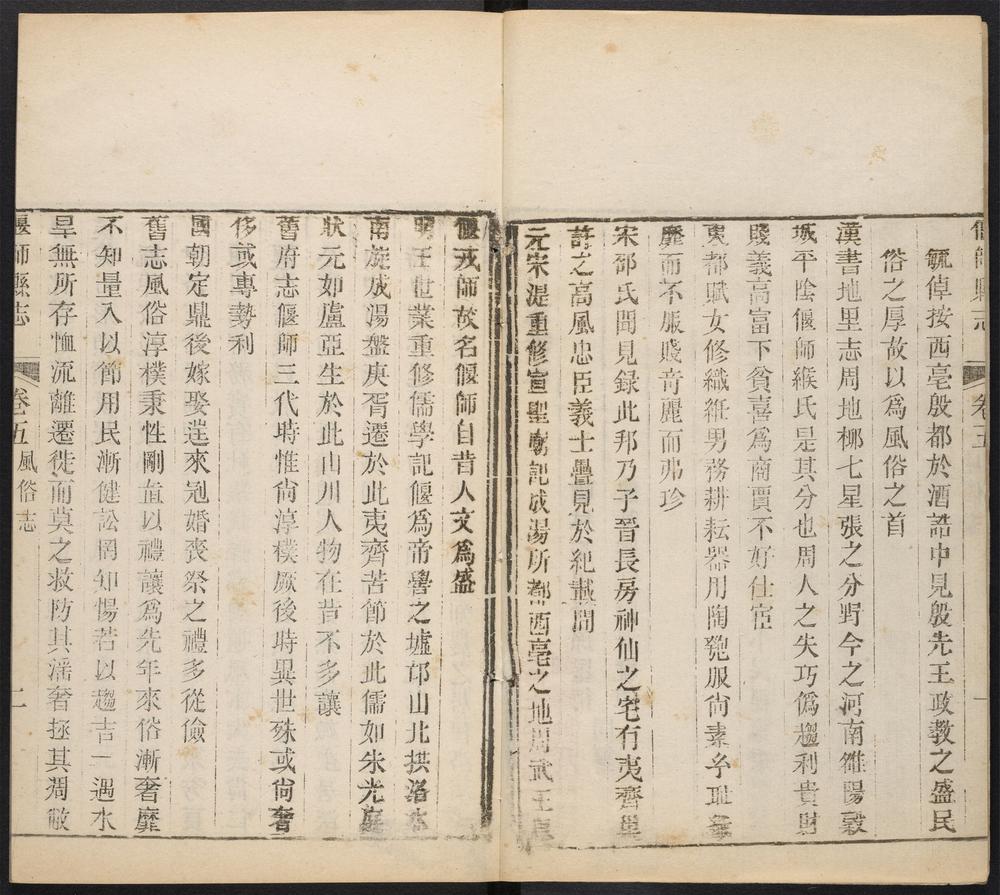 偃師縣志
卷五
毓倬按西亳殷都於酒誥中見殷先王政教之盛民
俗之厚故以爲風俗之首
漢書地里志周地柳七星張之分野今之河南雒陽穀
城平陰偃師緱氏是其分也周人之失巧僞趨利貴財
賤義高富下貧喜爲商賈不好仕宦
東都賦女修織紝男務耕耘器用陶匏服尚素㐨耻纎
靡而不服賤奇麗而弗珍
宋邵氏聞見録此邦乃子晉長房神仙之宅有夷齊巢
許之高風忠臣義士疊見於紀載間
元宋湜重修宣聖廟記成湯所都西亳之地周武王
偃戎師故名偃師自昔人文爲盛
明王世業重修儒學記偃爲帝嚳之墟邙山北拱洛水
南旋成湯盤庚胥遷於此夷齊苦節於此儒如朱光庭
狀元如盧亞生於此山川人物在昔不多讓
舊府志偃師三代時惟尚淳樸厥後時異世殊或尚奢
侈或專勢利
國朝定鼎後嫁娶迎來冠婚喪祭之禮多從儉
舊志風俗淳樸秉性剛直以禮讓爲先年來俗漸奢靡
不知量入以節用民漸健訟罔知惕若以趨吉一遇水
旱無所存恤流離遷徙而莫之救防其淫奢拯其凋敝
偃師縣志
卷五風俗志
二